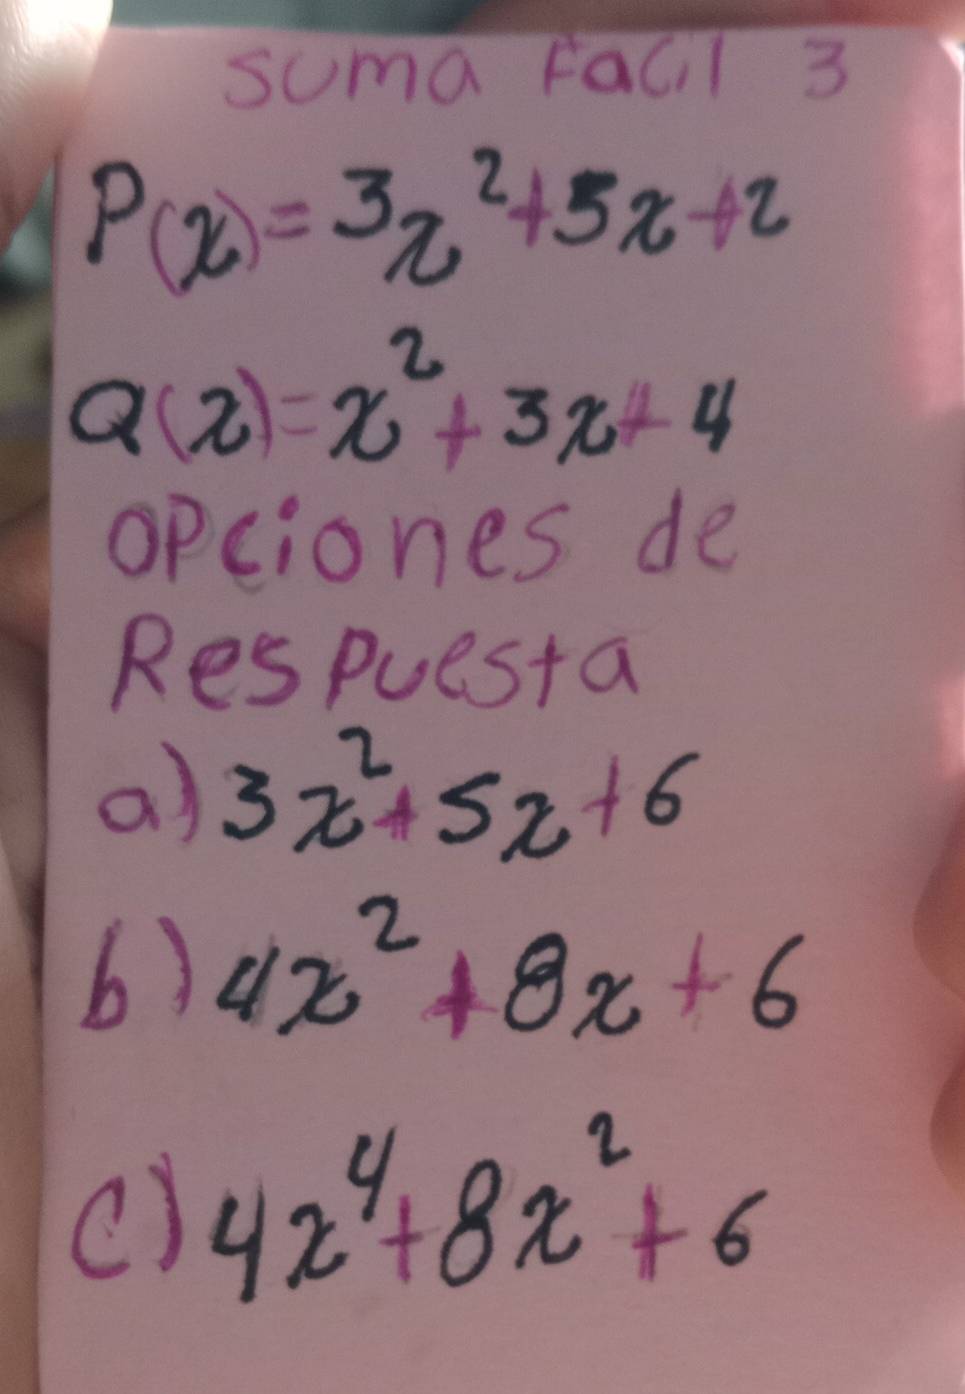 Suma Facil 3
P(x)=3x²+5x+2
Q(x)=x²+3x+4
opciones de
Respuesta
a) 3x²+5x+6
b) 4x²+8x+6
c) 4x⁴+8x²+6